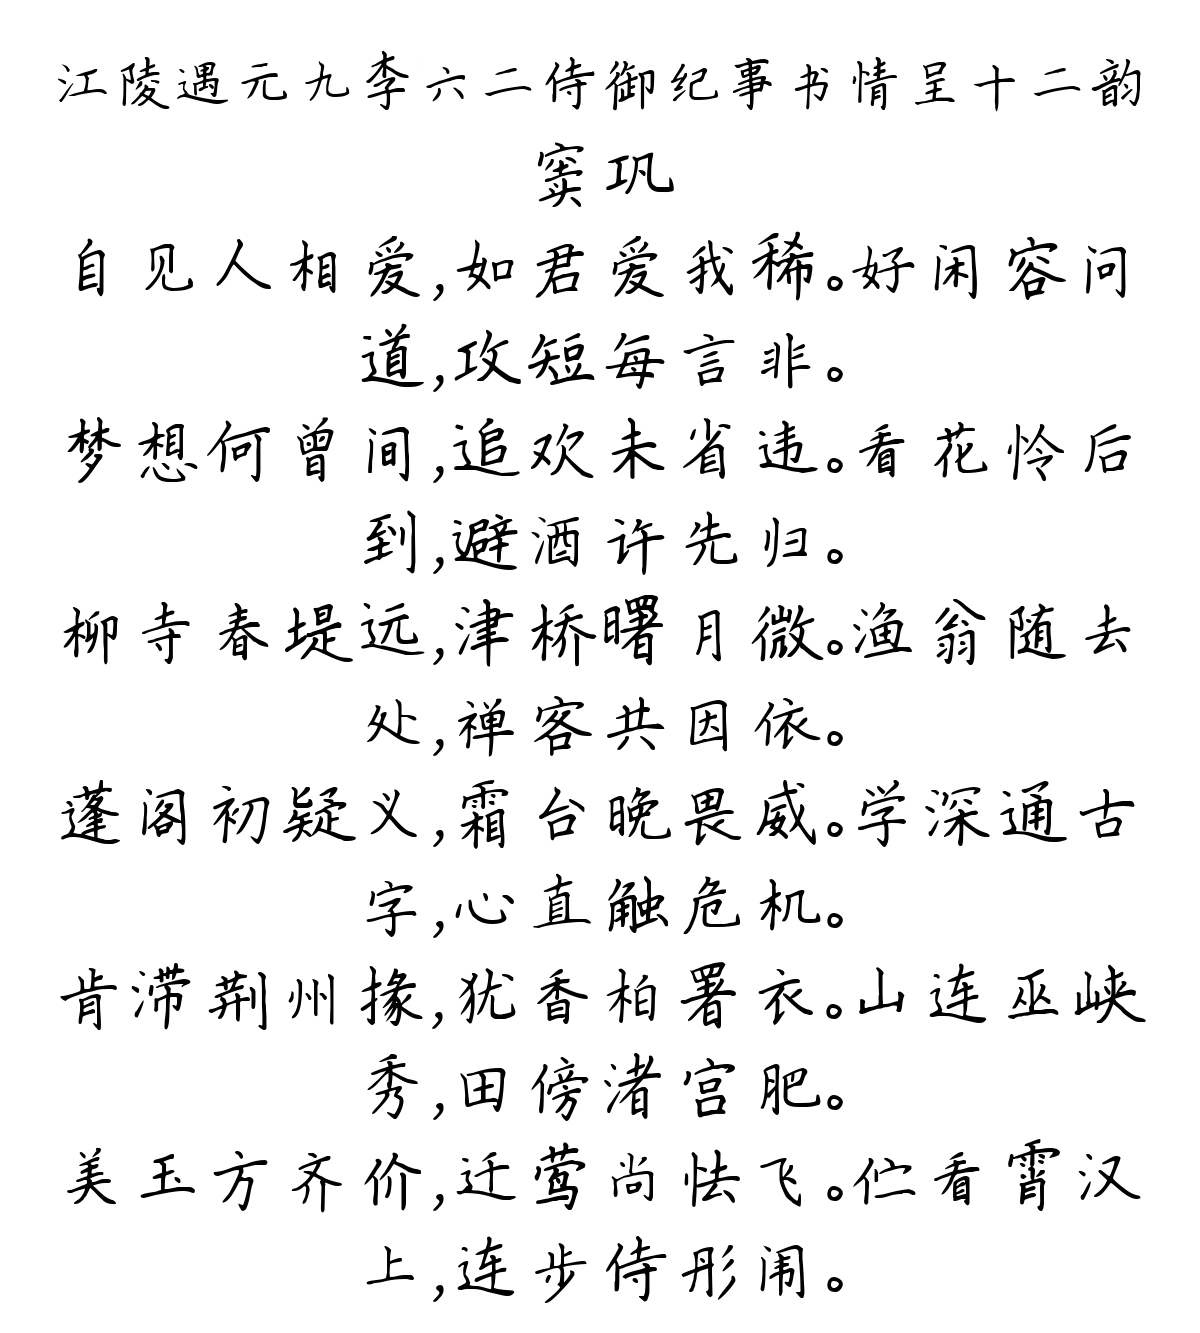 江陵遇元九李六二侍御纪事书情呈十二韵
窦巩
自见人相爱,如君爱我稀。好闲容问
道,攻短每言非。
梦想何曾间,追欢未省违。看花怜后
到,避酒许先归。
柳寺春堤远,津桥曙月微。渔翁随去
处,禅客共因依。
蓬阁初疑义,霜台晚畏威。学深通古
字,心直触危机。
肯滞荆州掾,犹香柏署衣。山连巫峡
秀,田傍渚宫肥。
美玉方齐价,迁莺尚怯飞。伫看霄汉
上,连步侍彤闱。